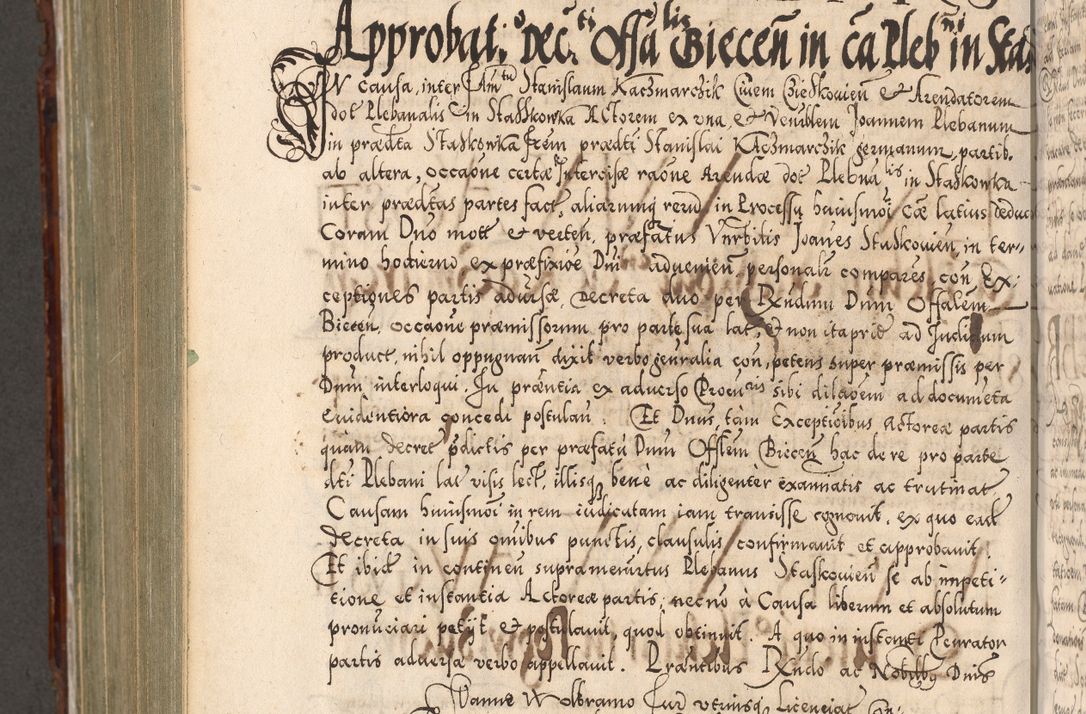 Approbat: Decti Offalis Biecen in ca Pleb in Stas
IN Causa, inter Famtu Stanislaum Kaczmarczik Civem Ciezkovien & Arendatorem
dot Plebanalis in Staszkowka Actorem ex una, & Venrblem Joannem Plebanum
in prædta Staszkowka frem prædti Stanislai Kaczmarczik germanum, partib.
ab altera, occaone certæ Intercisæ raone Arendæ dot Plebnalis in Staszkowka
inter prædtas partes fact, aliarumq rerum in Processu huiusmoi Cæ latius deduc
Coram Dno mott & verten, præfatus Vnrbilis Joanes Staszkovien, in ter-
mino hodierno ex præfixioe Dni advenien, personalr compares, con Ex-
ceptiones partis adversæ, Decreta duo per Rndum Dnm Offalem
Biecen, occaone præmissorum pro parte sua lat, & non ita prid ad Judicium
product, nihil oppugnan dixit verbo genralia con, petens super præmissis per
Dnm interloqui. In præntia ex adverso Procuris sibi dilaoem ad documeta
evidentiora concedi postulan. Et Dnus, tam Exceptioibus Actoreæ partis
quam decret pdictis per præfatu Dnm Offlem Biecen hac de re pro parte
dti Plebani lat visis lect, illisq bene ac diligenter examinatis ac trutinat
Causam huiusmoi in rem iudicatam iam transisse cognovit, ex quo ead
decreta in suis omibus punctis, clausulis, confirmavit et approbavit.
Et ibid in continen supramemrtus Plebanus Staszkovien se ab impeti-
tione et instantia Actoreæ partis, necno à Causa liberum et absolutum
pronuciari petijt & postulavit, quod obtinuit. A quo in instanti Pcurator
partis adversa verbo appellavit. Præntibus Rndo ac Nobilibq Dnis
Wolbramo Jur utriusq Licenciat